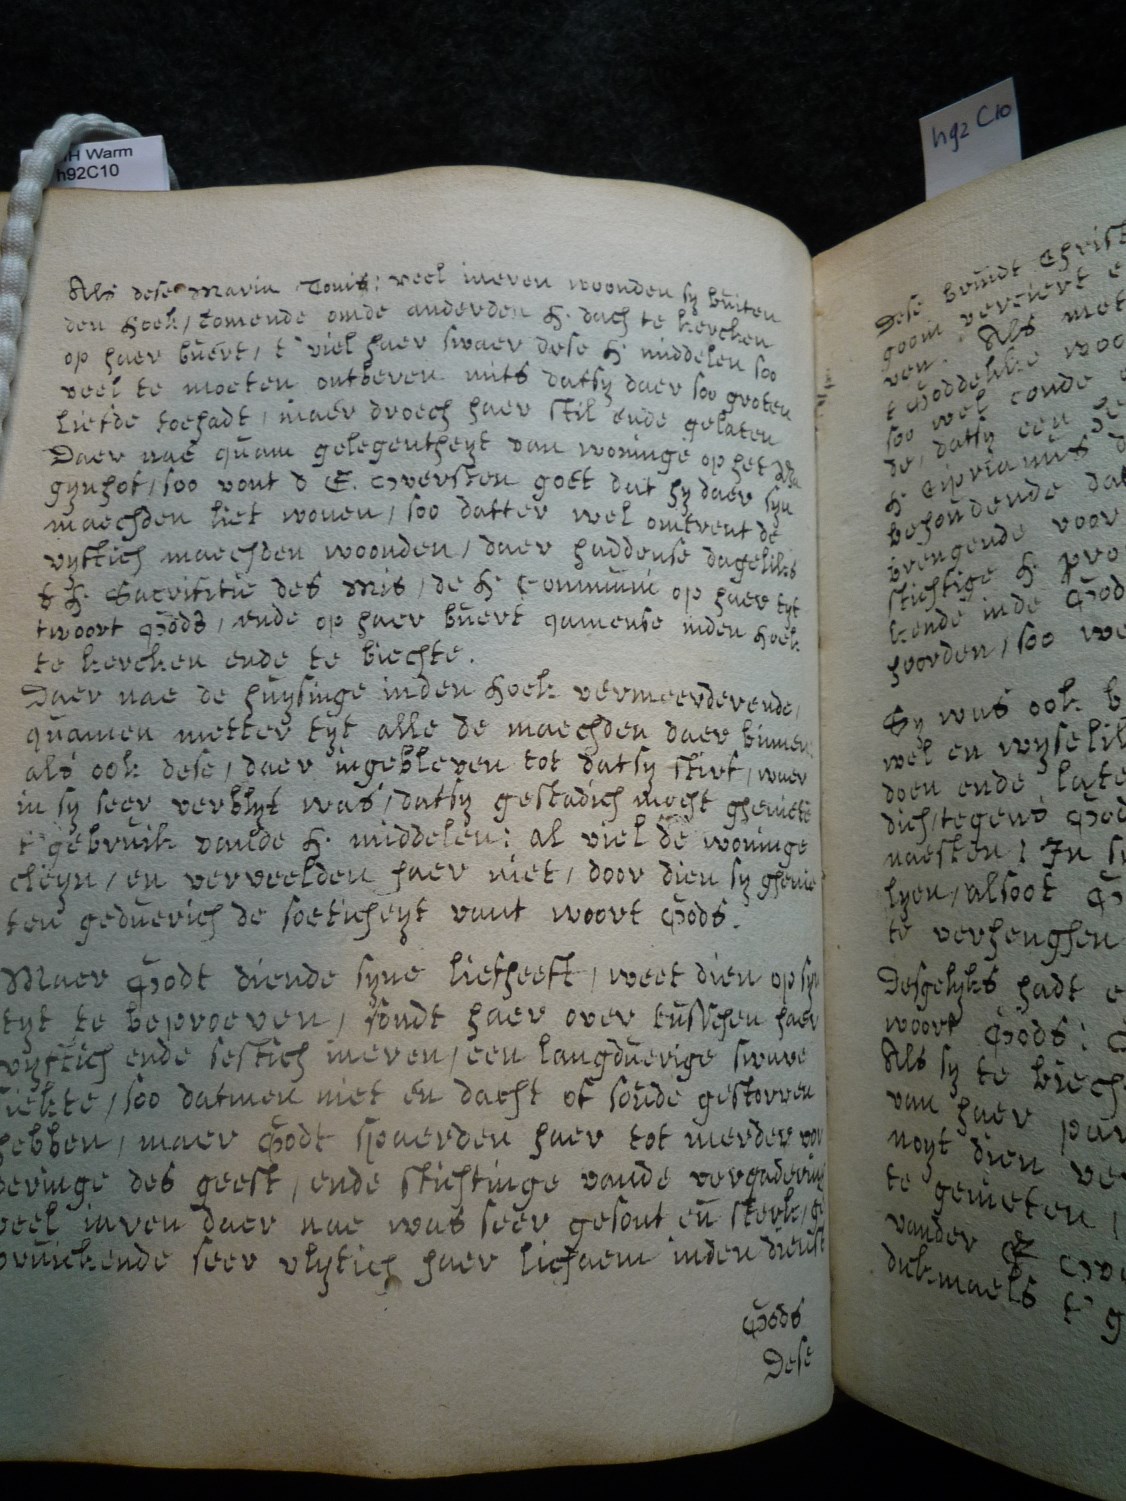 H Warm
h92C10
h92 C10
Als dese Maria Tonis: veel iaeren woonden sy buiten
den Hoek / comende omde anderden H. dach te kercken
op haer buert / t' viel haer swaer dese H. middelen soo
veel te moeten ontberen mits datsy daer soo groten
liefde toehadt / maer droech haer stil ende gelaten
Daer nae quam gelegentheyt van woninge op het Ba
gynhof / soo vont d E. Oversten goet dat hy daer syn
maechden liet wonen / soo datter wel omtrent de
vyftich maechden woonden / daer haddense dageliks
t H. Sacrifitie des Mis / de H. Communi op haer tyt
twoort Godts / ende op haer buert quamense inden Hoek
te kercken ende te biechte.
Daer nae de huysinge inden Hoek vermeerderende /
quamen metter tyt alle de maechden daer binnen
als ook dese / daer ingebleven tot datsy stirf / waer
in sy seer verblyt was / datsy gestadich mocht ghenieten
t' gebruik vande H. middelen: al viel de woninge
cleyn / en verveelden haer niet / door dien sy ghenie
ten geduerich de soeticheyt vant woort Gods.
Maer Godt diende syne liefheeft / weet dien op syn
tyt te beproeven / sondt haer over tusschen haer
vyftich ende sestich iaeren / een langduerige sware
siekte / soo datmen niet en dacht of soude gestorven
hebben / maer Godt spaerden haer tot meerder vor
deringe des geest / ende stichtinge vande vergadering
veel iaren daer nae was seer gesont en sterk / ge
bruickende seer vlytich haer lichaem inden dienst
Gods
Dese
Dese bruidt Christ
verciert
ven. Als met
t Goddelike woo
soo wel conde
de / datsy een
H. Ciprianus
behoudende dat
brengende voor
stichtige H. pro
kende inde God
hoorden / soo we
Sy was ook b
wel en wyselik
doen ende late
dich / tegens God
naesten: In
lyen / alsoot G
te verhenghen
Desgelyks hadt
woort Gods:
Als sy te biech
van haer
noyt dien ver
te genieten
vander E Ov
dikmaels t' g